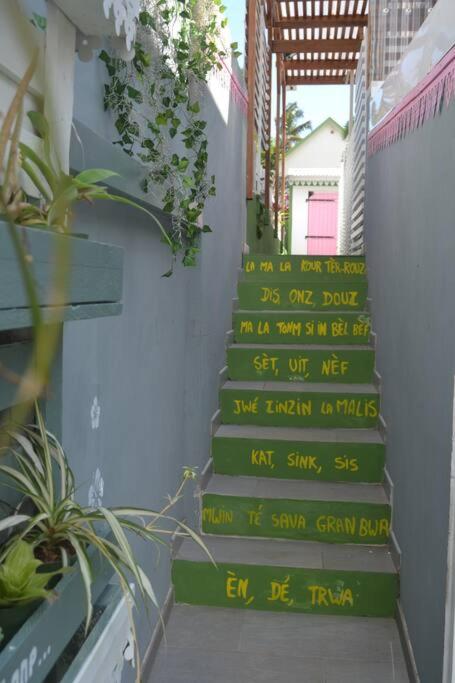 LA MA LA KOUR TÈR-ROUZ
DIS, ONZ, DOUZ
MA LA TONM SI IN BÈL BÈF
SÈT, UIT, NÈF
JWÉ ZINZIN LA MALIS
KAT, SINK, SIS
MWIN TÉ SAVA GRAN BWA
ÈN, DÉ, TRWA